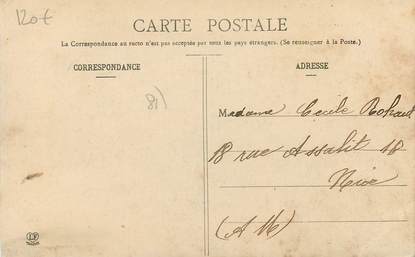 120€
CARTE POSTALE
La Correspondance au recto n'est pas acceptée par tous les pays étrangers. (Se renseigner à la Poste.)
CORRESPONDANCE
ADRESSE
81)
Madame Cécile
18 rue Assalit 18
Nice
(A M)